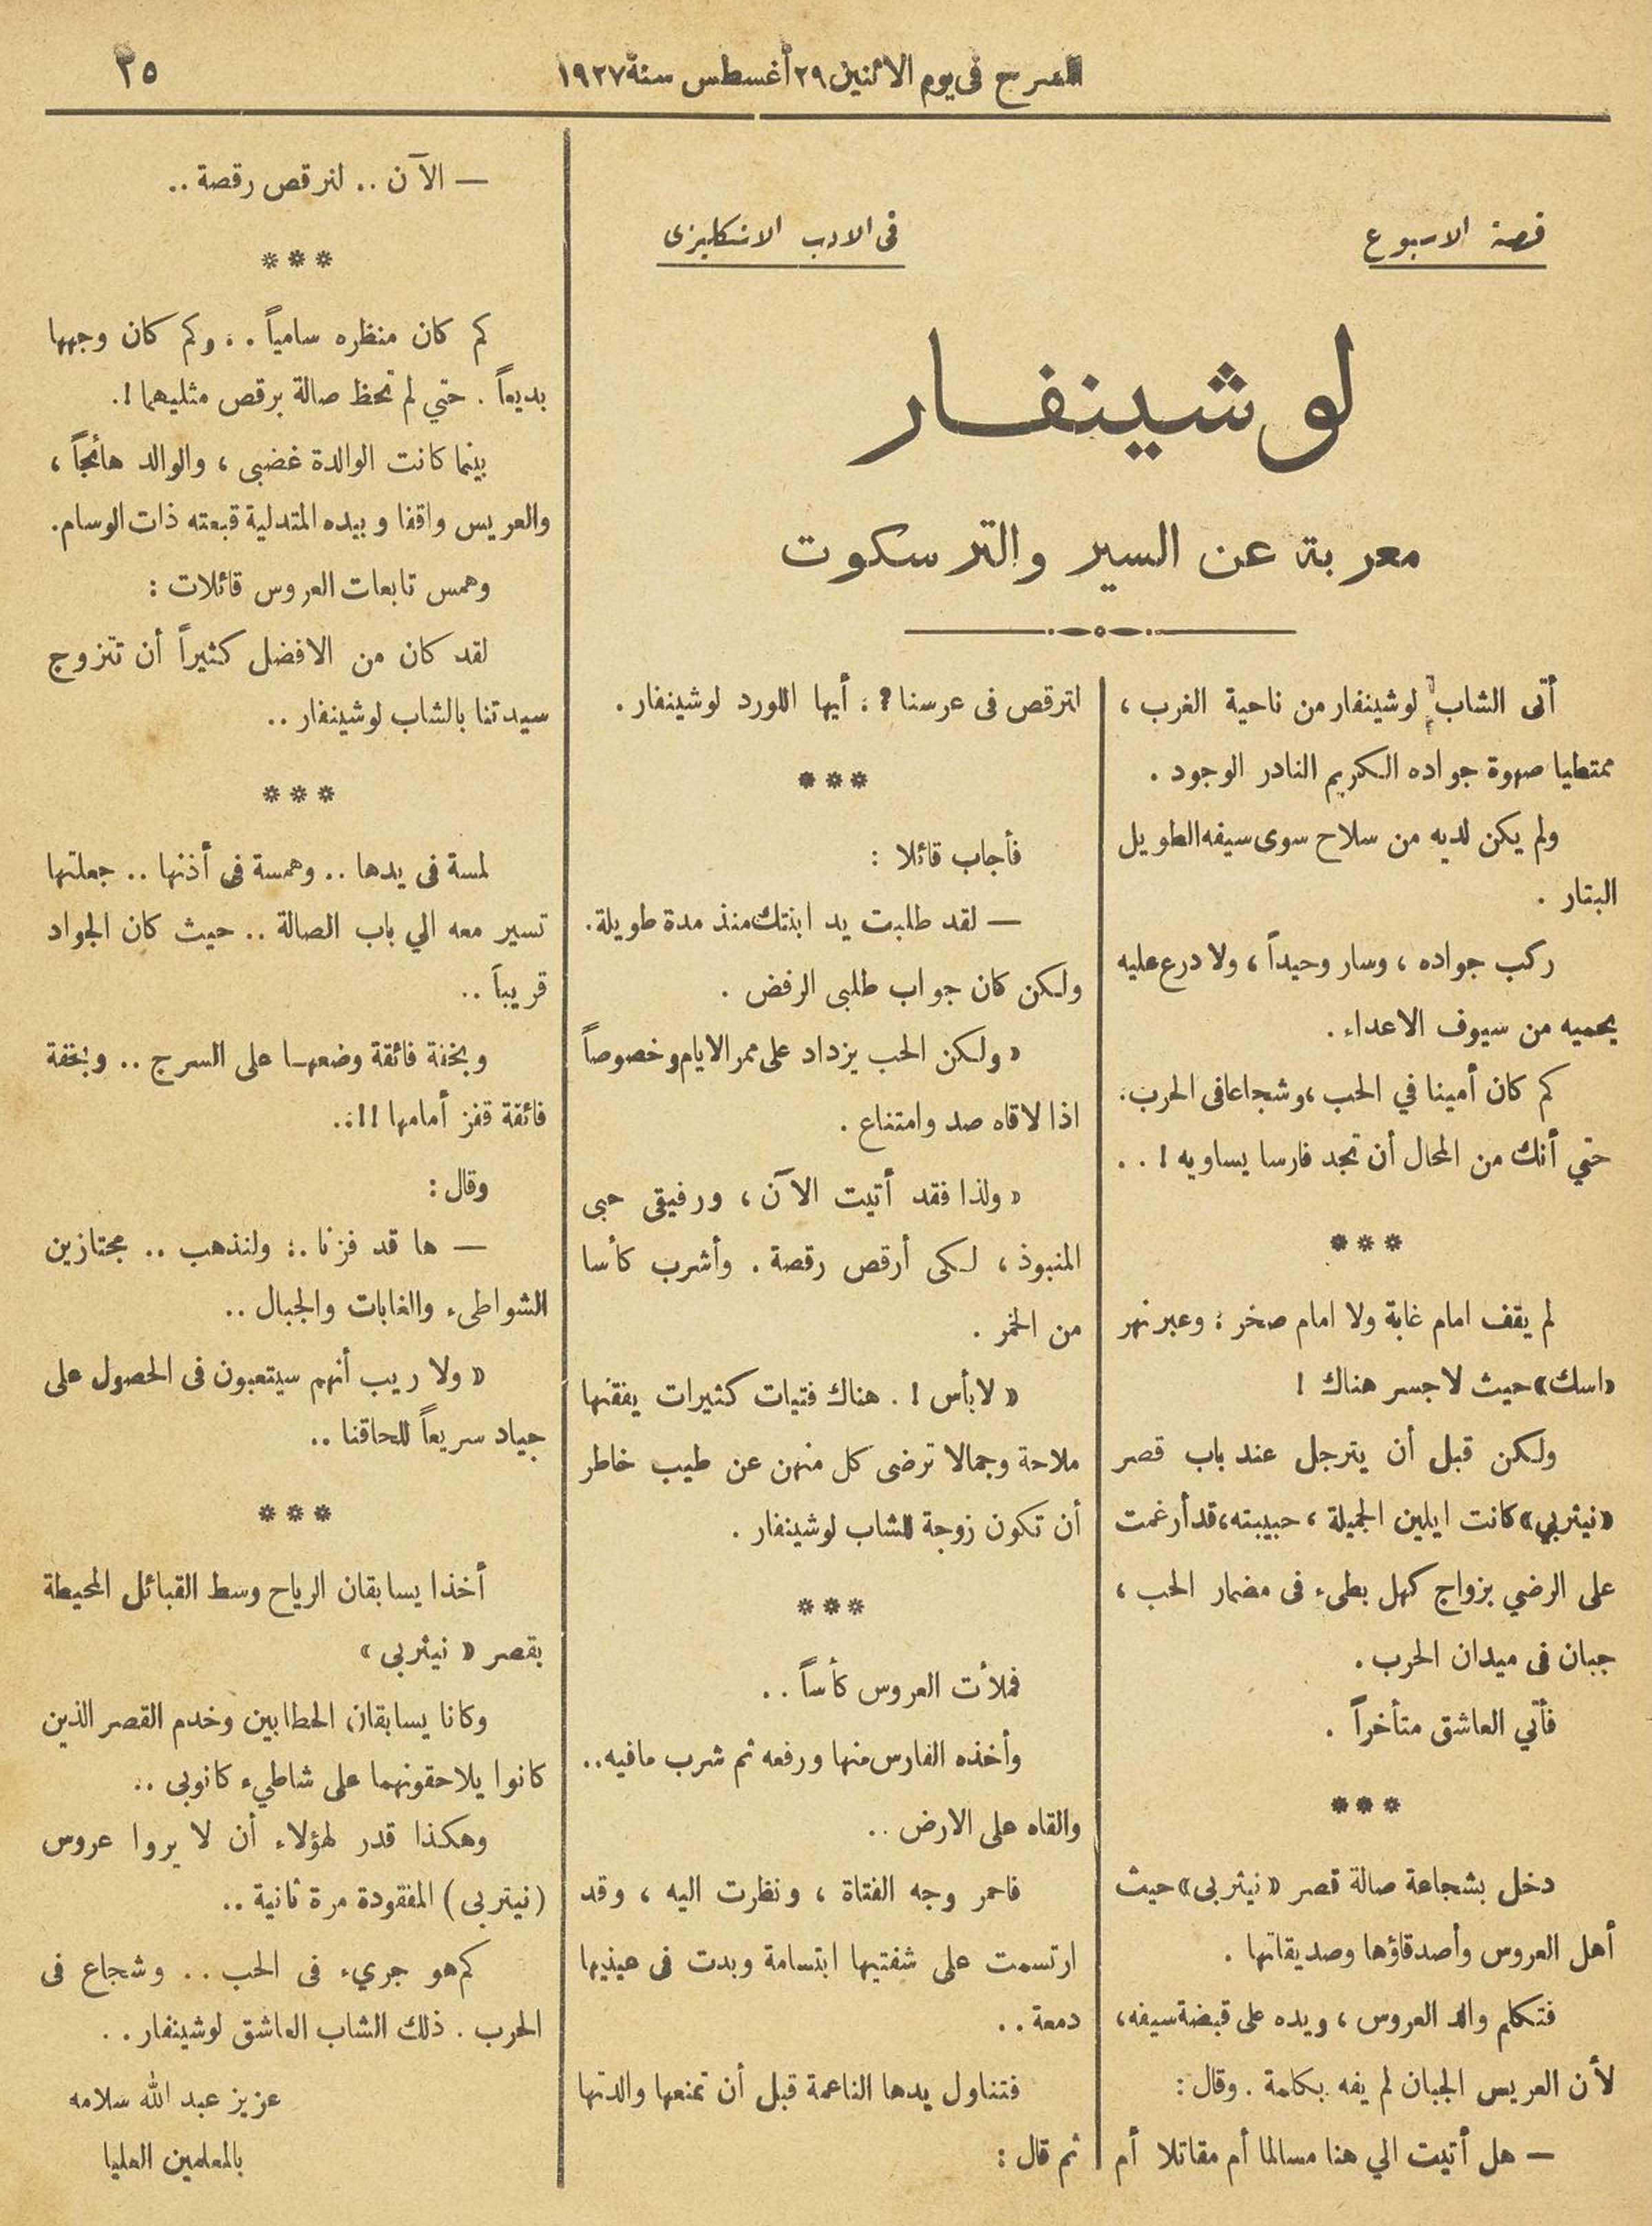 المسرح في يوم الاثنين ٢٩ أغسطس سنة ١٩٢٧
٣٥
قصة الاسبوع
في الادب الانكليزى
لوشينفار
معربة عن السير والتر سكوت
أتى الشاب لوشينفار من ناحية الغرب ،
ممتطيا صهوة جواده الكريم النادر الوجود .
ولم يكن لديه من سلاح سوى سيفه الطويل
البتار .
ركب جواده ، وسار وحيداً ، ولا درع عليه
يحميه من سيوف الاعداء .
كم كان أمينا في الحب ، وشجاعا فى الحرب .
حتي أنك من المحال أن تجد فارسا يساويه ! . .
***
لم يقف امام غابة ولا امام صخر : وعبر نهر
«اسك» حيث لا جسر هناك !
ولكن قبل أن يترجل عند باب قصر
«نيثربي» كانت ايلين الجميلة ، حبيبته ، قد أرغمت
على الرضي بزواج كهل بطىء فى مضمار الحب ،
جبان فى ميدان الحرب .
فأتي العاشق متأخراً .
***
دخل بشجاعة صالة قصر «نيثربى» حيث
أهل العروس وأصدقاؤها وصديقاتها .
فتكلم والد العروس ، ويده على قبضة سيفه ،
لأن العريس الجبان لم يفه بكلمة . وقال :
— هل أتيت الي هنا مسالما أم مقاتلا أم
لترقص فى عرسنا ? . أيها اللورد لوشينفار .
***
فأجاب قائلا :
— لقد طلبت يد ابنتك منذ مدة طويلة .
ولكن كان جواب طلبى الرفض .
« ولكن الحب يزداد على ممر الايام وخصوصاً
اذا لاقاه صد وامتناع .
« ولذا فقد أتيت الآن ، ورفيقى حبى
المنبوذ ، لكى أرقص رقصة . وأشرب كأسا
من الخمر .
« لا بأس ! . هناك فتيات كثيرات يفقنها
ملاحة وجمالا ترضى كل منهن عن طيب خاطر
أن تكون زوجة للشاب لوشينفار .
***
فملأت العروس كأساً . .
وأخذه الفارس منها ورفعه ثم شرب ما فيه . .
والقاه على الارض . .
فاحمر وجه الفتاة ، ونظرت اليه ، وقد
ارتسمت على شفتيها ابتسامة وبدت فى عينيها
دمعة . .
فتناول يدها الناعمة قبل أن تمنعها والدتها
ثم قال :
— الآن . . لنرقص رقصة . .
***
كم كان منظره سامياً . . وكم كان وجهها
بديعاً . حتي لم تحظ صالة برقص مثليهما ! .
بينما كانت الوالدة غضبى ، والوالد هائجاً ،
والعريس واقفا وبيده المتدلية قبعته ذات الوسام .
وهمس تابعات العروس قائلات :
لقد كان من الافضل كثيراً أن تتزوج
سيدتنا بالشاب لوشينفار . .
***
لمسة فى يدها . . وهمسة فى أذنها . . جعلتها
تسير معه الي باب الصالة . . حيث كان الجواد
قريباً . .
وبخفة فائقة وضعها على السرج . . وبخفة
فائقة قفز أمامها ! ! . .
وقال :
— ها قد فزنا . . ولنذهب . . مجتازين
الشواطىء والغابات والجبال . .
« ولا ريب أنهم سيتعبون فى الحصول على
جياد سريعاً للحاقنا . .
***
أخذا يسابقان الرياح وسط القبائل المحيطة
بقصر « نيثربى »
وكانا يسابقان الحطابين وخدم القصر الذين
كانوا يلاحقونهما على شاطيء كانوبى . .
وهكذا قدر لهؤلاء أن لا يروا عروس
(نيتربى) المفقودة مرة ثانية . .
كم هو جريء فى الحب . . وشجاع فى
الحرب . ذلك الشاب العاشق لوشينفار . .
عزيز عبد الله سلامه
بالمعلمين العليا